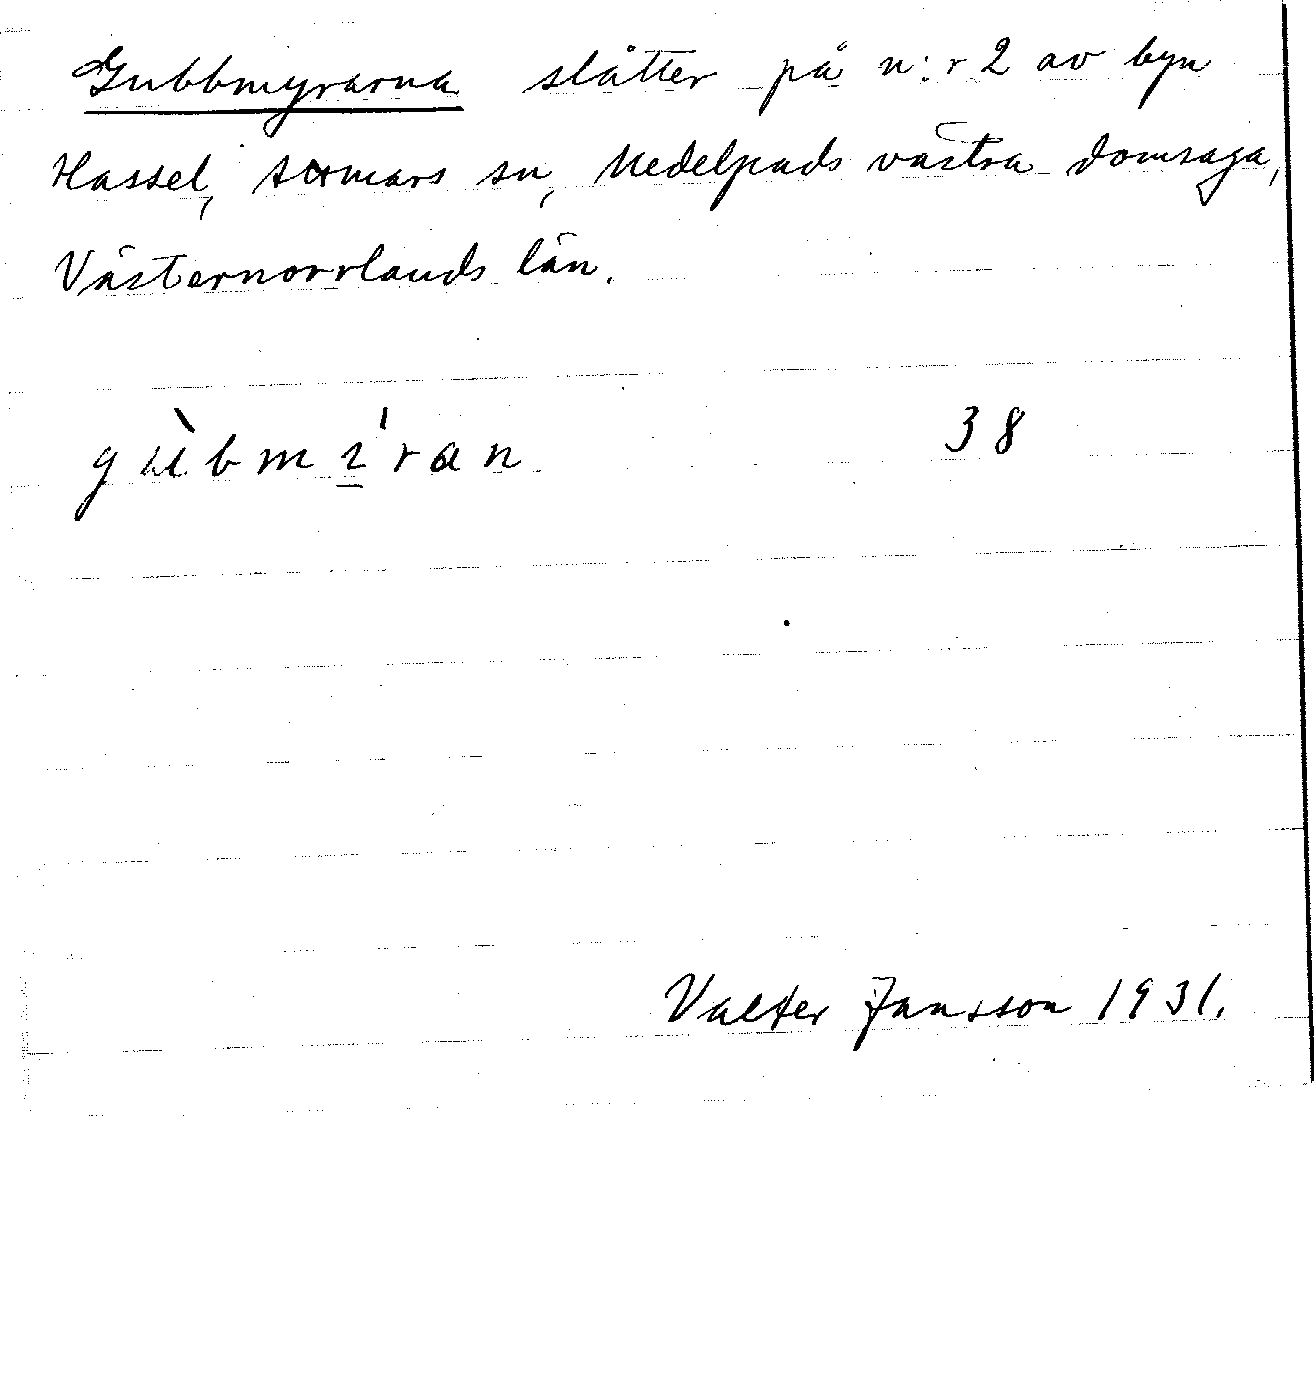 Gubbmyrarna slåtter på n:r 2 av byn
Hassel, Attmars sn, Medelpads västra domsaga,
Västernorrlands län.
gùbmı̲́ran 38
Valter Jansson 1931.